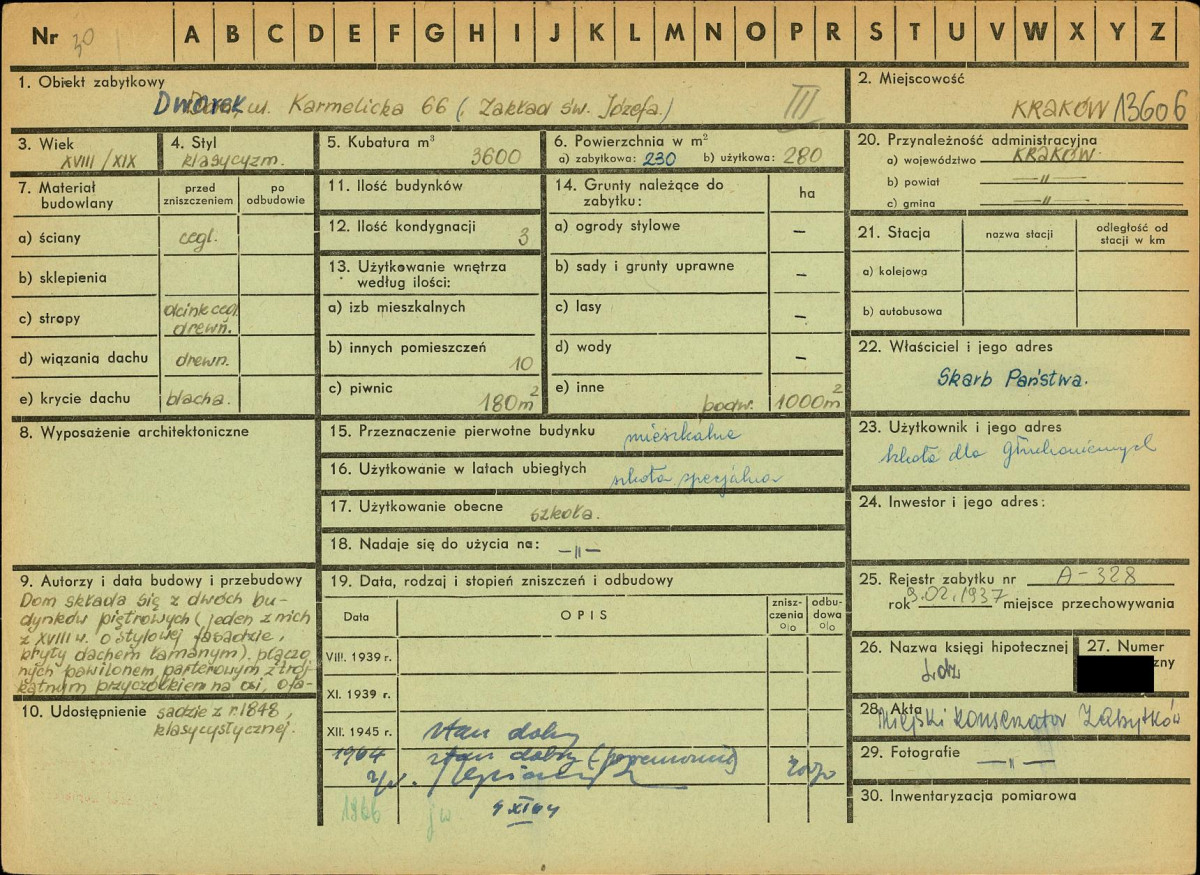 Nr 30 A B C D E F G H I J K L M N O P R S T U V W X Y Z
1. Obiekt zabytkowy
Dworek, ul. Karmelicka 66 (. Zakład św. Józefa.)
III
2. Miejscowość
KRAKÓW 13606
3. Wiek
XVIII / XIX
4. Styl
klasycyzm.
5. Kubatura m³
3600
6. Powierzchnia w m²
a) zabytkowa: 230 b) użytkowa: 280
20. Przynależność administracyjna
a) województwo KRAKÓW.
b) powiat —„—
c) gmina —„—
7. Materiał budowlany
przed zniszczeniem
po odbudowie
a) ściany cegl.
b) sklepienia
c) stropy odcink cegl. drewn.
d) wiązania dachu drewn.
e) krycie dachu blacha.
11. Ilość budynków
12. Ilość kondygnacji 3
13. Użytkowanie wnętrza
według ilości:
a) izb mieszkalnych
b) innych pomieszczeń 10
c) piwnic 180 m²
14. Grunty należące do
zabytku:
ha
a) ogrody stylowe —
b) sady i grunty uprawne —
c) lasy —
d) wody —
e) inne podw. 1000 m²
21. Stacja
nazwa stacji
odległość od
stacji w km
a) kolejowa
b) autobusowa
22. Właściciel i jego adres
Skarb Państwa.
8. Wyposażenie architektoniczne
15. Przeznaczenie pierwotne budynku mieszkalne
16. Użytkowanie w latach ubiegłych szkoła specjalna
17. Użytkowanie obecne szkoła.
18. Nadaje się do użycia na: —„—
23. Użytkownik i jego adres
szkoła dla Głuchoniemych
24. Inwestor i jego adres:
9. Autorzy i data budowy i przebudowy
Dom składa się z dwóch bu-
dynków piętrowych (jeden z nich
z XVIII w. o stylowej fasadzie,
kryty dachem łamanym). płączo
nych pawilonem parterowym z trój
kątnym przyczółkiem na osi, ofa-
10. Udostępnienie sadzie z r. 1848,
klasycystycznej.
19. Data, rodzaj i stopień zniszczeń i odbudowy
Data
OPIS
znisz-
czenia
%
odbu-
dowa
%
VIII. 1939 r.
XI. 1939 r.
XII. 1945 r. stan dobry
1964 stan dobry
4 XI 64
1966 jw
25. Rejestr zabytku nr A-328
rok 9.02.1937 miejsce przechowywania
26. Nazwa księgi hipotecznej
27. Numer
zny
28. Akta
Miejski Konserwator Zabytków
29. Fotografie —„—
30. Inwentaryzacja pomiarowa